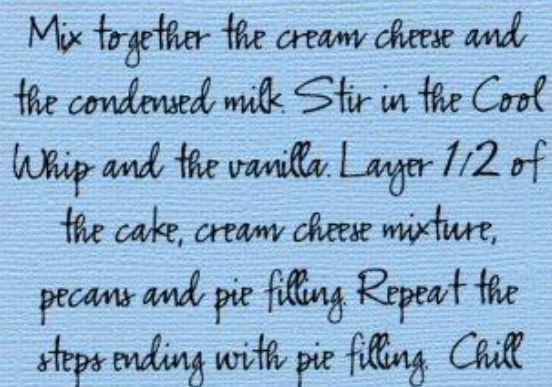 Mix together the cream cheese and
the condensed milk. Stir in the Cool
Whip and the vanilla. Layer 1/2 of
the cake, cream cheese mixture,
pecans and pie filling. Repeat the
steps ending with pie filling. Chill